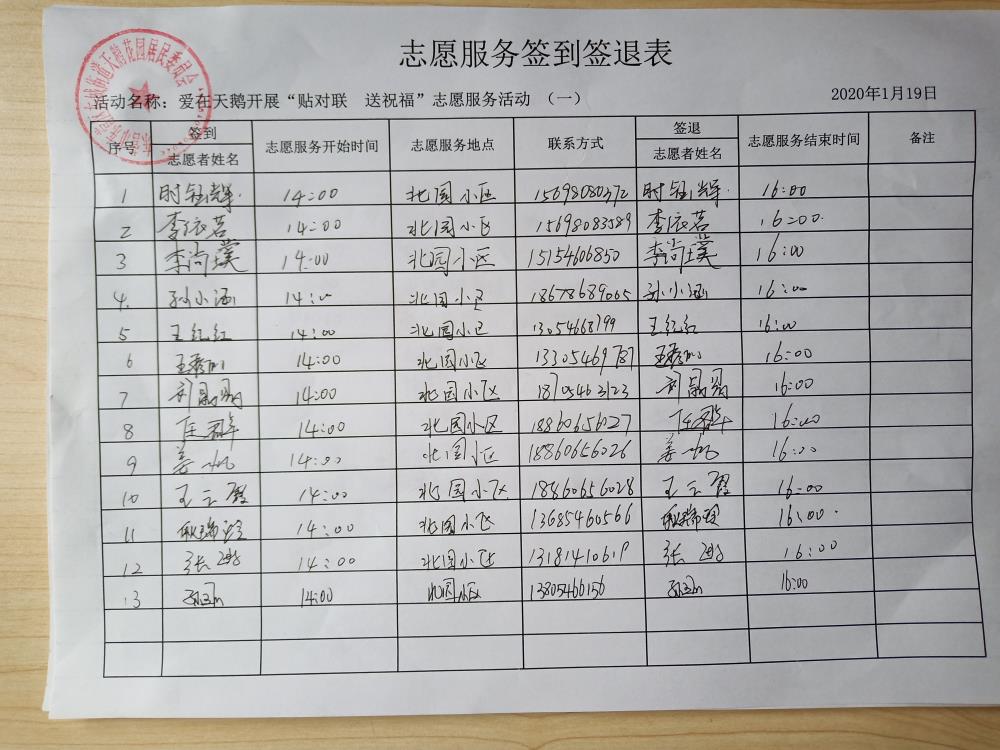 志愿服务签到签退表
天鹅花园居民委员会
活动名称：爱在天鹅开展“贴对联 送祝福”志愿服务活动 （一） 2020年1月19日
序号 签到 志愿者姓名 志愿服务开始时间 志愿服务地点 联系方式 签退 志愿者姓名 志愿服务结束时间 备注
1 14:00 北园小区 15698080372 16:00
2 李依茗 14:00 北园小区 15698083589 李依茗 16:00
3 李尚璞 14:00 北园小区 15154606850 李尚璞 16:00
4 孙小涵 14:00 北园小区 18678689065 孙小涵 16:00
5 王红红 14:00 北园小区 13054668799 王红红 16:00
6 14:00 北园小区 13305469787 16:00
7 14:00 北园小区 18705463123 16:00
8 任群 14:00 北园小区 18860656027 任群 16:00
9 姜帆 14:00 北园小区 18860656026 姜帆 16:00
10 王云霞 14:00 北园小区 18860656028 王云霞 16:00
11 14:00 北园小区 13685460566 16:00
12 张 14:00 北园小区 13181410619 张 16:00
13 14:00 北园小区 13805466156 16:00